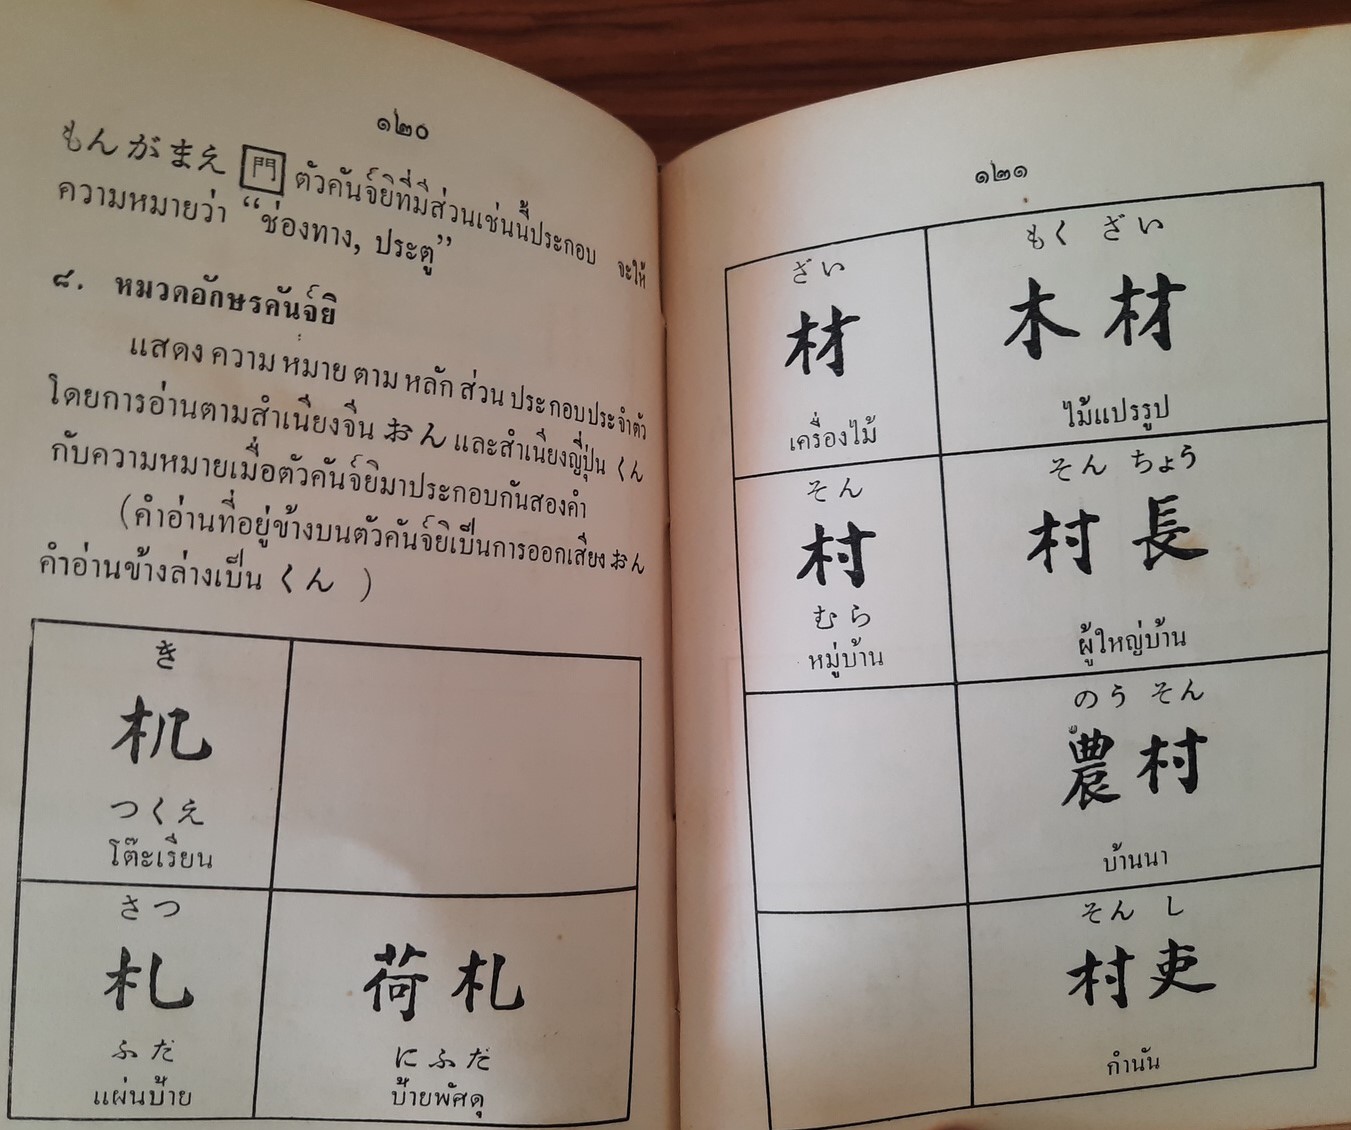 ๑๒๐
もんがまえ 門 ตัวคันจ์ยิที่มีส่วนเช่นนี้ประกอบ จะให้
ความหมายว่า “ช่องทาง, ประตู”
๘. หมวดอักษรคันจ์ยิ
แสดงความหมายตามหลักส่วนประกอบประจำตัว
โดยการอ่านตามสำเนียงจีน おん และสำเนียงญี่ปุ่น くん
กับความหมายเมื่อตัวคันจ์ยิมาประกอบกันสองคำ
(คำอ่านที่อยู่ข้างบนตัวคันจ์ยิเป็นการออกเสียง おん
คำอ่านข้างล่างเป็น くん )
き
机
つくえ
โต๊ะเรียน
さつ
札
ふだ
แผ่นป้าย
荷札
にふだ
ป้ายพัศดุ
๑๒๑
ざい
材
เครื่องไม้
もく ざい
木材
ไม้แปรรูป
そん
村
むら
หมู่บ้าน
そん ちょう
村長
ผู้ใหญ่บ้าน
のう そん
農村
บ้านนา
そん し
村吏
กำนัน